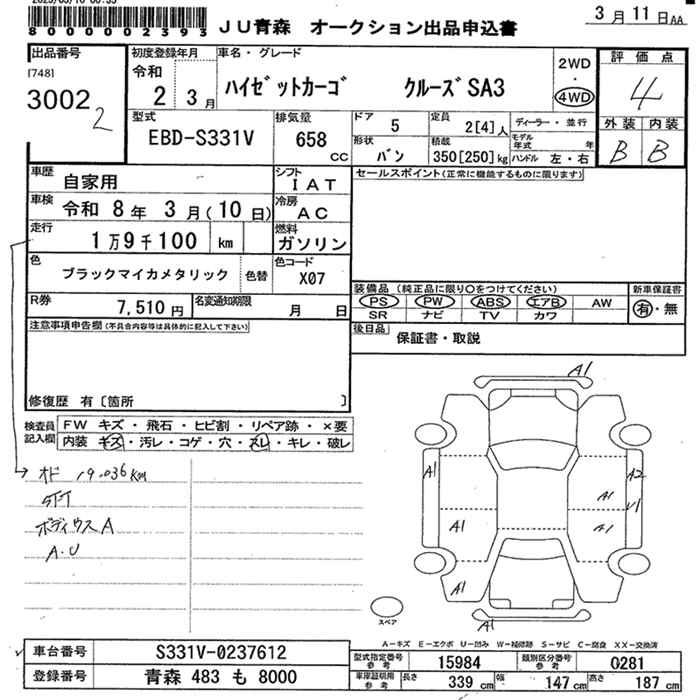 8000002393
JU青森 オークション出品申込書
3月11日AA
出品番号
[748]
3002
2
初度登録年月
令和
2 3月
車名・グレード
ハイゼットカーゴ クルーズSA3
2WD
・
4WD
評価点
4
外装 内装
B B
型式
EBD-S331V
排気量
658
cc
ドア
5
定員
2[4]人
ディーラー・並行
形状
バン
積載
350[250]kg
モデル年式 年
ハンドル 左・右
車歴
自家用
シフト
IAT
車検 令和 8年 3月(10日)
冷房
AC
走行
1万9千100 km
燃料
ガソリン
色
ブラックマイカメタリック 色替
色コード
X07
R券
7,510円
名変通知期限
月 日
セールスポイント(正常に機能するものに限ります)
装備品 (純正品に限り○をつけてください)
PS PW ABS エアB AW
SR ナビ TV カワ
新車保証書
有・無
後日品
保証書・取説
注意事項申告欄(不具合内容等は具体的に記入して下さい)
修復歴 有〔箇所 〕
検査員記入欄
FW キズ・飛石・ヒビ割・リペア跡・×要
内装 キズ・汚レ・コゲ・穴・スレ・キレ・破レ
オド 19.036KM
ボディウスA
A.U
A1
A1
A2
A1
V1
A1
A1
A1
A1
スペア
A-キズ E-エクボ U-凹み W-補修跡 S-サビ C-腐食 XX-交換済
車台番号 S331V-0237612
登録番号 青森 483 も 8000
型式指定番号 参考 15984
類別区分番号 参考 0281
車庫証明用 参考 長さ 339cm 幅 147cm 高さ 187cm